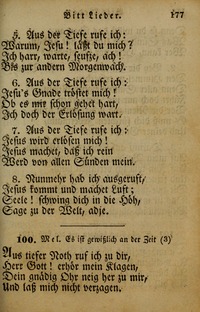 Bitt Lieder. 177
5. Aus der Tiefe rufe ich:
Warum, Jesu! läßt du mich?
Ich harr, warte, seufze, ach!
Bis zur andern Morgenwach.
6. Aus der Tiefe rufe ich:
Jesu's Gnade tröstet mich!
Ob es mir schon gehet hart,
Ich doch der Erlösung wart.
7. Aus der Tiefe rufe ich:
Jesus wird erlösen mich!
Jesus machet, daß ich rein
Werd von allen Sünden mein.
8. Nunmehr hab ich ausgeruft,
Jesus kommt und machet Luft;
Seele! schwing dich in die Höh,
Sage zu der Welt, adje.
100. Mel. Es ist gewißlich an der Zeit (3)
Aus tiefer Noth ruf ich zu dir,
Herr Gott! erhör mein Klagen,
Dein gnädig Ohr neig her zu mir,
Und laß mich nicht verzagen.